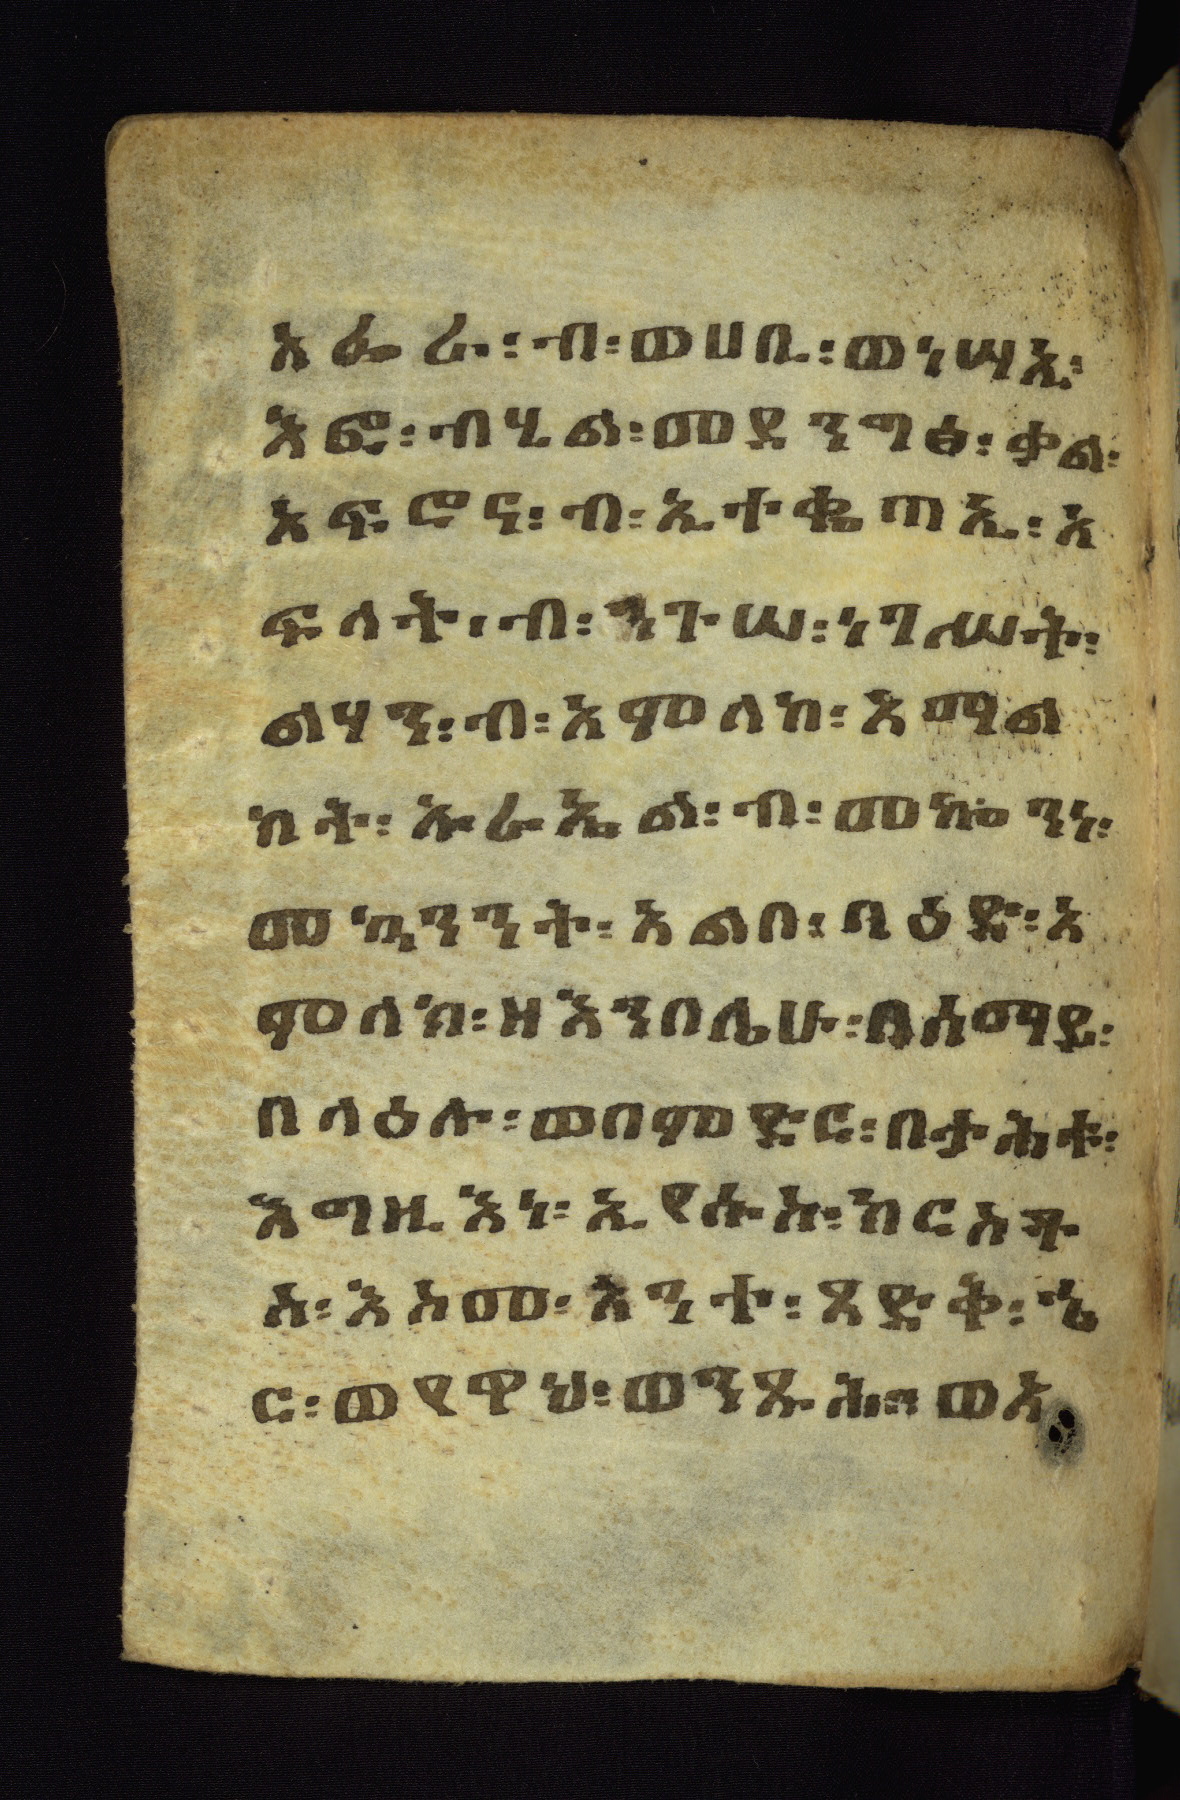 አፌራ፡ ብ፡ ወሀቢ፡ ወነሣኢ፡
አፎ፡ ብሂል፡ መደንግፅ፡ ቃል፡
አፍሮና፡ ብ፡ ኢተቈጣኢ፡ አ
ፍላት፡ ብ፡ ንጉሠ፡ ነገሠት፡
ልሃን፡ ብ፡ አምላክ፡ አማል
ክት፡ ኡራኤል፡ ብ፡ መኰንነ፡
መኳንንት፡ አልቦ፡ ባዕድ፡ አ
ምላክ፡ ዘእንበሌሁ፡ በሰማይ፡
በላዕሉ፡ ወበምድር፡ በታሕቱ፡
እግዚእነ፡ ኢየሱስ፡ ክርስቶ
ስ፡ እስመ፡ አንተ፡ ጻድቅ፡ ኄ
ር፡ ወየዋህ፡ ወንጹሕ። ወአ